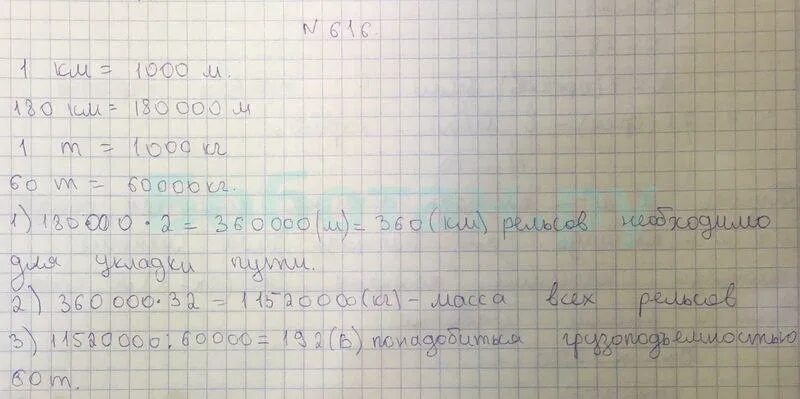 N 616.
1 км = 1000 м.
180 км = 180000 м
1 т = 1000 кг
60 т = 60000 кг.
1) 180000 · 2 = 360000 (м) = 360 (км) рельсов необходимо
для укладки пути.
2) 360000 · 32 = 11520000 (кг) - масса всех рельсов
3) 11520000 : 60000 = 192 (в) понадобиться грузоподъемностью
60 т.